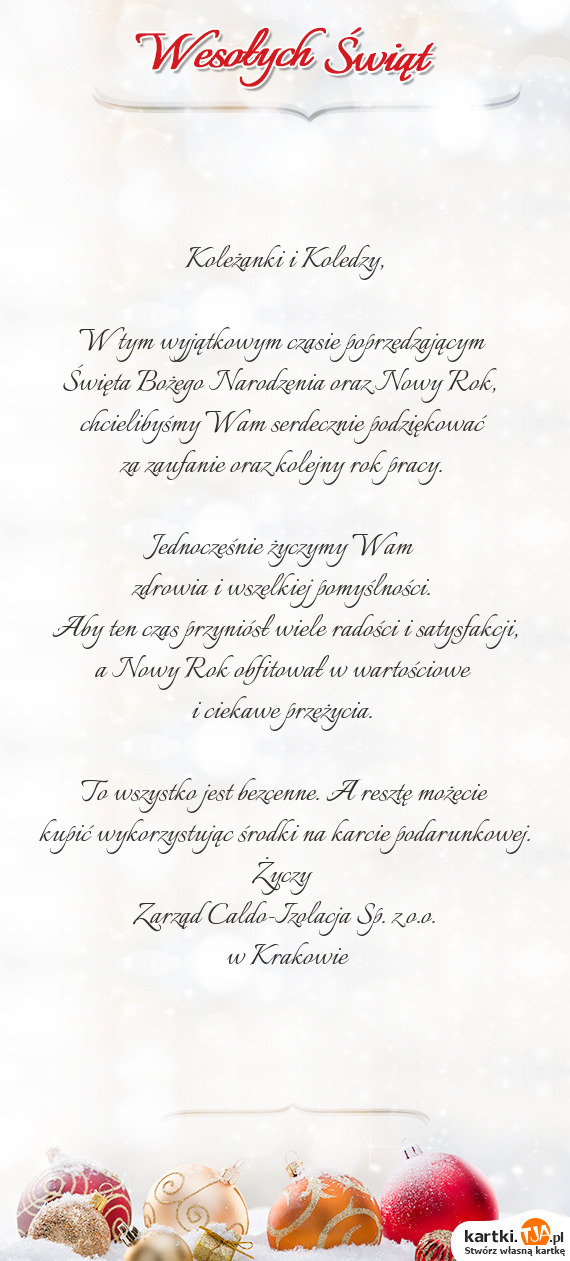 Wesołych Świąt
Koleżanki i Koledzy,
W tym wyjątkowym czasie poprzedzającym
Święta Bożego Narodzenia oraz Nowy Rok,
chcielibyśmy Wam serdecznie podziękować
za zaufanie oraz kolejny rok pracy.
Jednocześnie życzymy Wam
zdrowia i wszelkiej pomyślności.
Aby ten czas przyniósł wiele radości i satysfakcji,
a Nowy Rok obfitował w wartościowe
i ciekawe przeżycia.
To wszystko jest bezcenne. A resztę możecie
kupić wykorzystując środki na karcie podarunkowej.
Życzy
Zarząd Caldo-Izolacja Sp. z o.o.
w Krakowie
kartki.TJA.pl
Stwórz własną kartkę